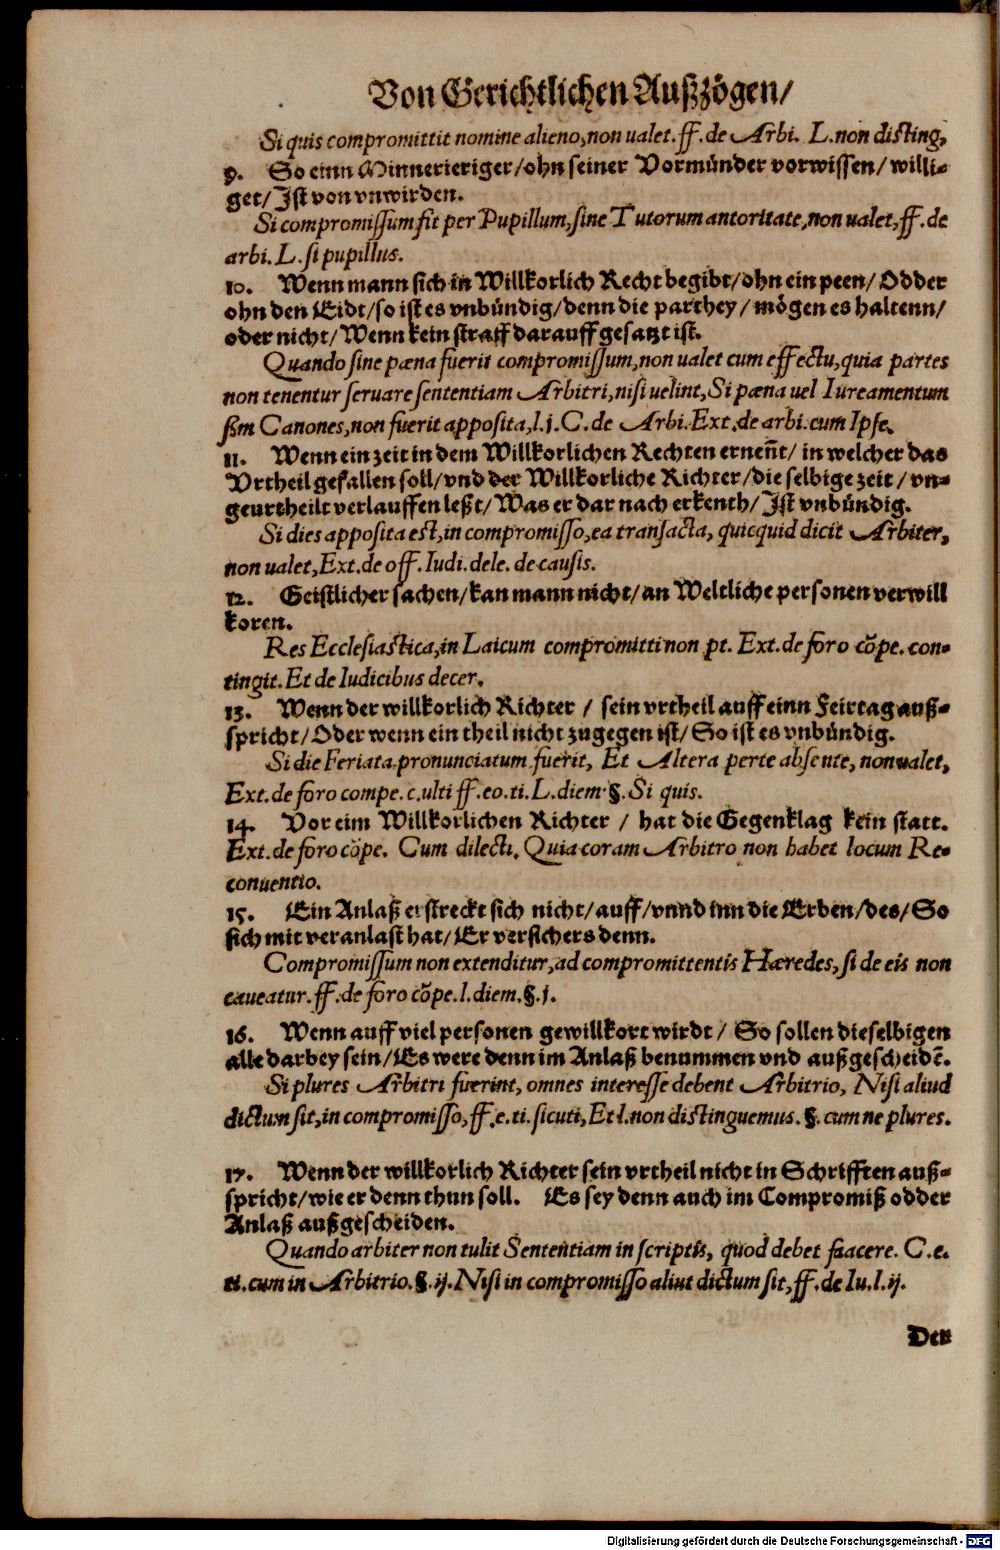 Von Gerichtlichen Außzögen/
Si quis compromittit nomine alieno, non ualet. ff. de Arbi. L. non disting,
9. So einn Minnerieriger/ohn seiner Vormünder vorwissen/ willi-
get/Ist von vnwirden.
Si compromissum fit per Pupillum, sine Tutorum antoritate, non ualet, ff. de
arbi. L. si pupillus.
10. Wenn mann sich in Willkorlich Recht begibt/ohn ein peen/ Odder
ohn den Eidt/so ist es vnbündig/denn die parthey/ mögen es haltenn/
oder nicht/Wenn kein straff darauff gesatzt ist.
Quando sine pæna fuerit compromissum, non ualet cum effectu, quia partes
non tenentur seruare sententiam Arbitri, nisi uelint, Si pæna uel Iureamentum
sm Canones, non fuerit apposita, l. j. C. de Arbi. Ext. de arbi. cum Ipse.
11. Wenn ein zeit in dem Willkorlichen Rechten ernen̄t/ in welcher das
Vrtheil gefallen soll/vnd der Willkorliche Richter/die selbige zeit/ vn-
geurtheilt verlauffen leßt/Was er dar nach erkenth/Ist vnbündig.
Si dies apposita est, in compromisso, ea transacta, quicquid dicit Arbiter,
non ualet, Ext. de off. Iudi. dele. de causis.
12. Geistlicher sachen/kan mann nicht/an Weltliche personen verwill
koren.
Res Ecclesiastica, in Laicum compromitti non pt. Ext. de foro cōpe. con-
tingit. Et de Iudicibus decer.
13. Wenn der willkorlich Richter / sein vrtheil auff einn Feirtag auß-
spricht/Oder wenn ein theil nicht zugegen ist/So ist es vnbündig.
Si die Feriata pronunciatum fuerit, Et Altera perte absente, non ualet,
Ext. de foro compe. c. ulti ff. eo. ti. L. diem §. Si quis.
14. Vor eim Willkorlichen Richter / hat die Gegenklag kein statt.
Ext. de foro cōpe. Cum dilecti. Quia coram Arbitro non habet locum Re-
conuentio.
15. Ein Anlaß erstreckt sich nicht/auff/vnnd inn die Erben/des/So
sich mit veranlast hat/Er versichers denn.
Compromissum non extenditur, ad compromittentis Hæredes, si de eis non
caueatur. ff. de foro cōpe. l. diem. §. j.
16. Wenn auff viel personen gewillkort wirdt/ So sollen dieselbigen
alle darbey sein/Es were denn im Anlaß benummen vnd außgescheidē.
Si plures Arbitri fuerint, omnes interesse debent Arbitrio, Nisi aliud
dictum sit, in compromisso, ff. e. ti. sicuti, Et l. non distinguemus. §. cum ne plures.
17. Wenn der willkorlich Richter sein vrtheil nicht in Schrifften auß-
spricht/wie er denn thun soll. Es sey denn auch im Compromiß odder
Anlaß außgescheiden.
Quando arbiter non tulit Sententiam in scriptis, quod debet faacere. C. e.
ti. cum in Arbitrio. §. ij. Nisi in compromisso aliut dictum sit, ff. de Iu. l. ij.
Der
Digitalisierung gefördert durch die Deutsche Forschungsgemeinschaft - DFG